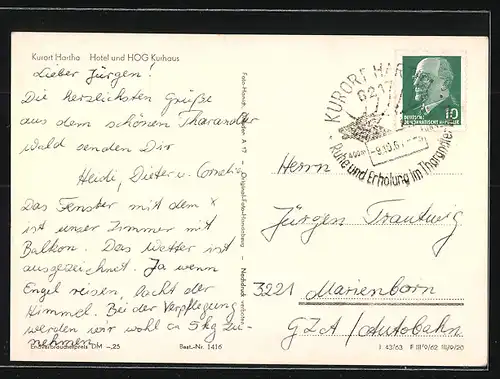 Kurort Hartha Hotel und HOG Kurhaus
Lieber Jürgen!
Die herzlichsten Grüße
aus dem schönen Tharandter
wald senden Dir
Heidi, Dieter u. Cornelia
Das Fenster mit dem x
ist unser Zimmer mit
Balkon. Das Wetter ist
ausgezeichnet. Ja wenn
Engel reisen, lacht der
Himmel. Bei der Verpflegung
werden wir wohl ca 5 kg zu-
nehmen
Endverbraucherpreis DM –,25 Best.-Nr. 1416
A 17 – Original-Foto-Handabzug – Nachdruck verboten
KURORT HAR
8217
9.10.67
Ruhe und Erholung im Tharandter
DEUTSCHE
DEMOKRATISCHE REPUBLIK
10
Herrn
Jürgen Trautwig
3221 Marienborn
GZA/Autobahn
J 43/63 F III/9/62 III/9/20